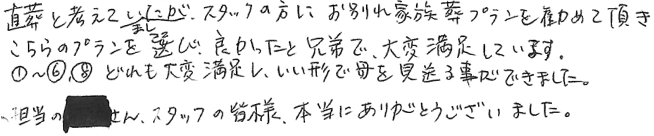 直葬と考えていましたが、スタッフの方に お別れ家族葬プランを勧めて頂き
こちらのプランを選び、良かったと兄弟で、大変満足しています。
①～⑥,⑧ どれも大変満足し、いい形で母を見送る事ができました。
担当の さん、スタッフの皆様、本当にありがとうございました。